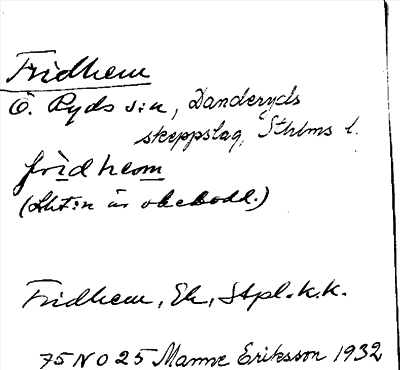 Fridhem
Ö. Ryds sn, Danderyds
skeppslag, Sthlms l.
fridhem
(Lht:n är obebodd.)
Fridhem, Eh, Stpl.k.k.
75 NO 25 Manne Eriksson 1932